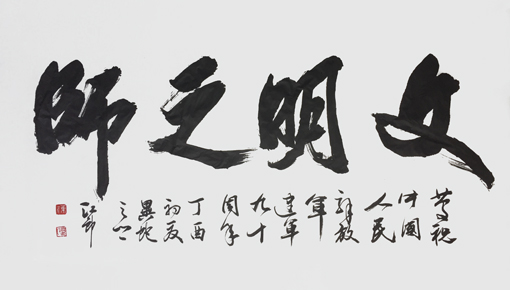 文明之师
慶祝
中國
人民
解放
軍
建軍
九十
周年
丁酉
初夏